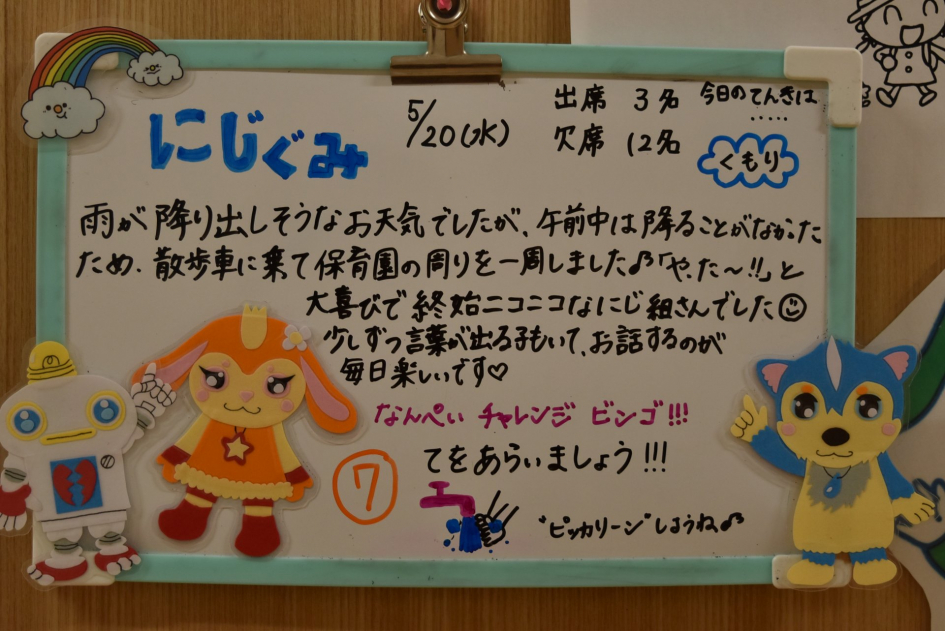 にじぐみ
5/20(水)
出席 3名
欠席 12名
今日のてんきは
.....
くもり
雨が降り出しそうなお天気でしたが、午前中は降ることがなかった
ため、散歩車に乗て保育園の周りを一周しました♪「やった〜!!」と
大喜びで終始ニコニコなにじ組さんでした☺
少しずつ言葉が出る子もいて、お話するのが
毎日楽しいです♡
なんぺい チャレンジ ビンゴ!!!
⑦
てをあらいましょう!!!
"ピッカリーン"しようね♪